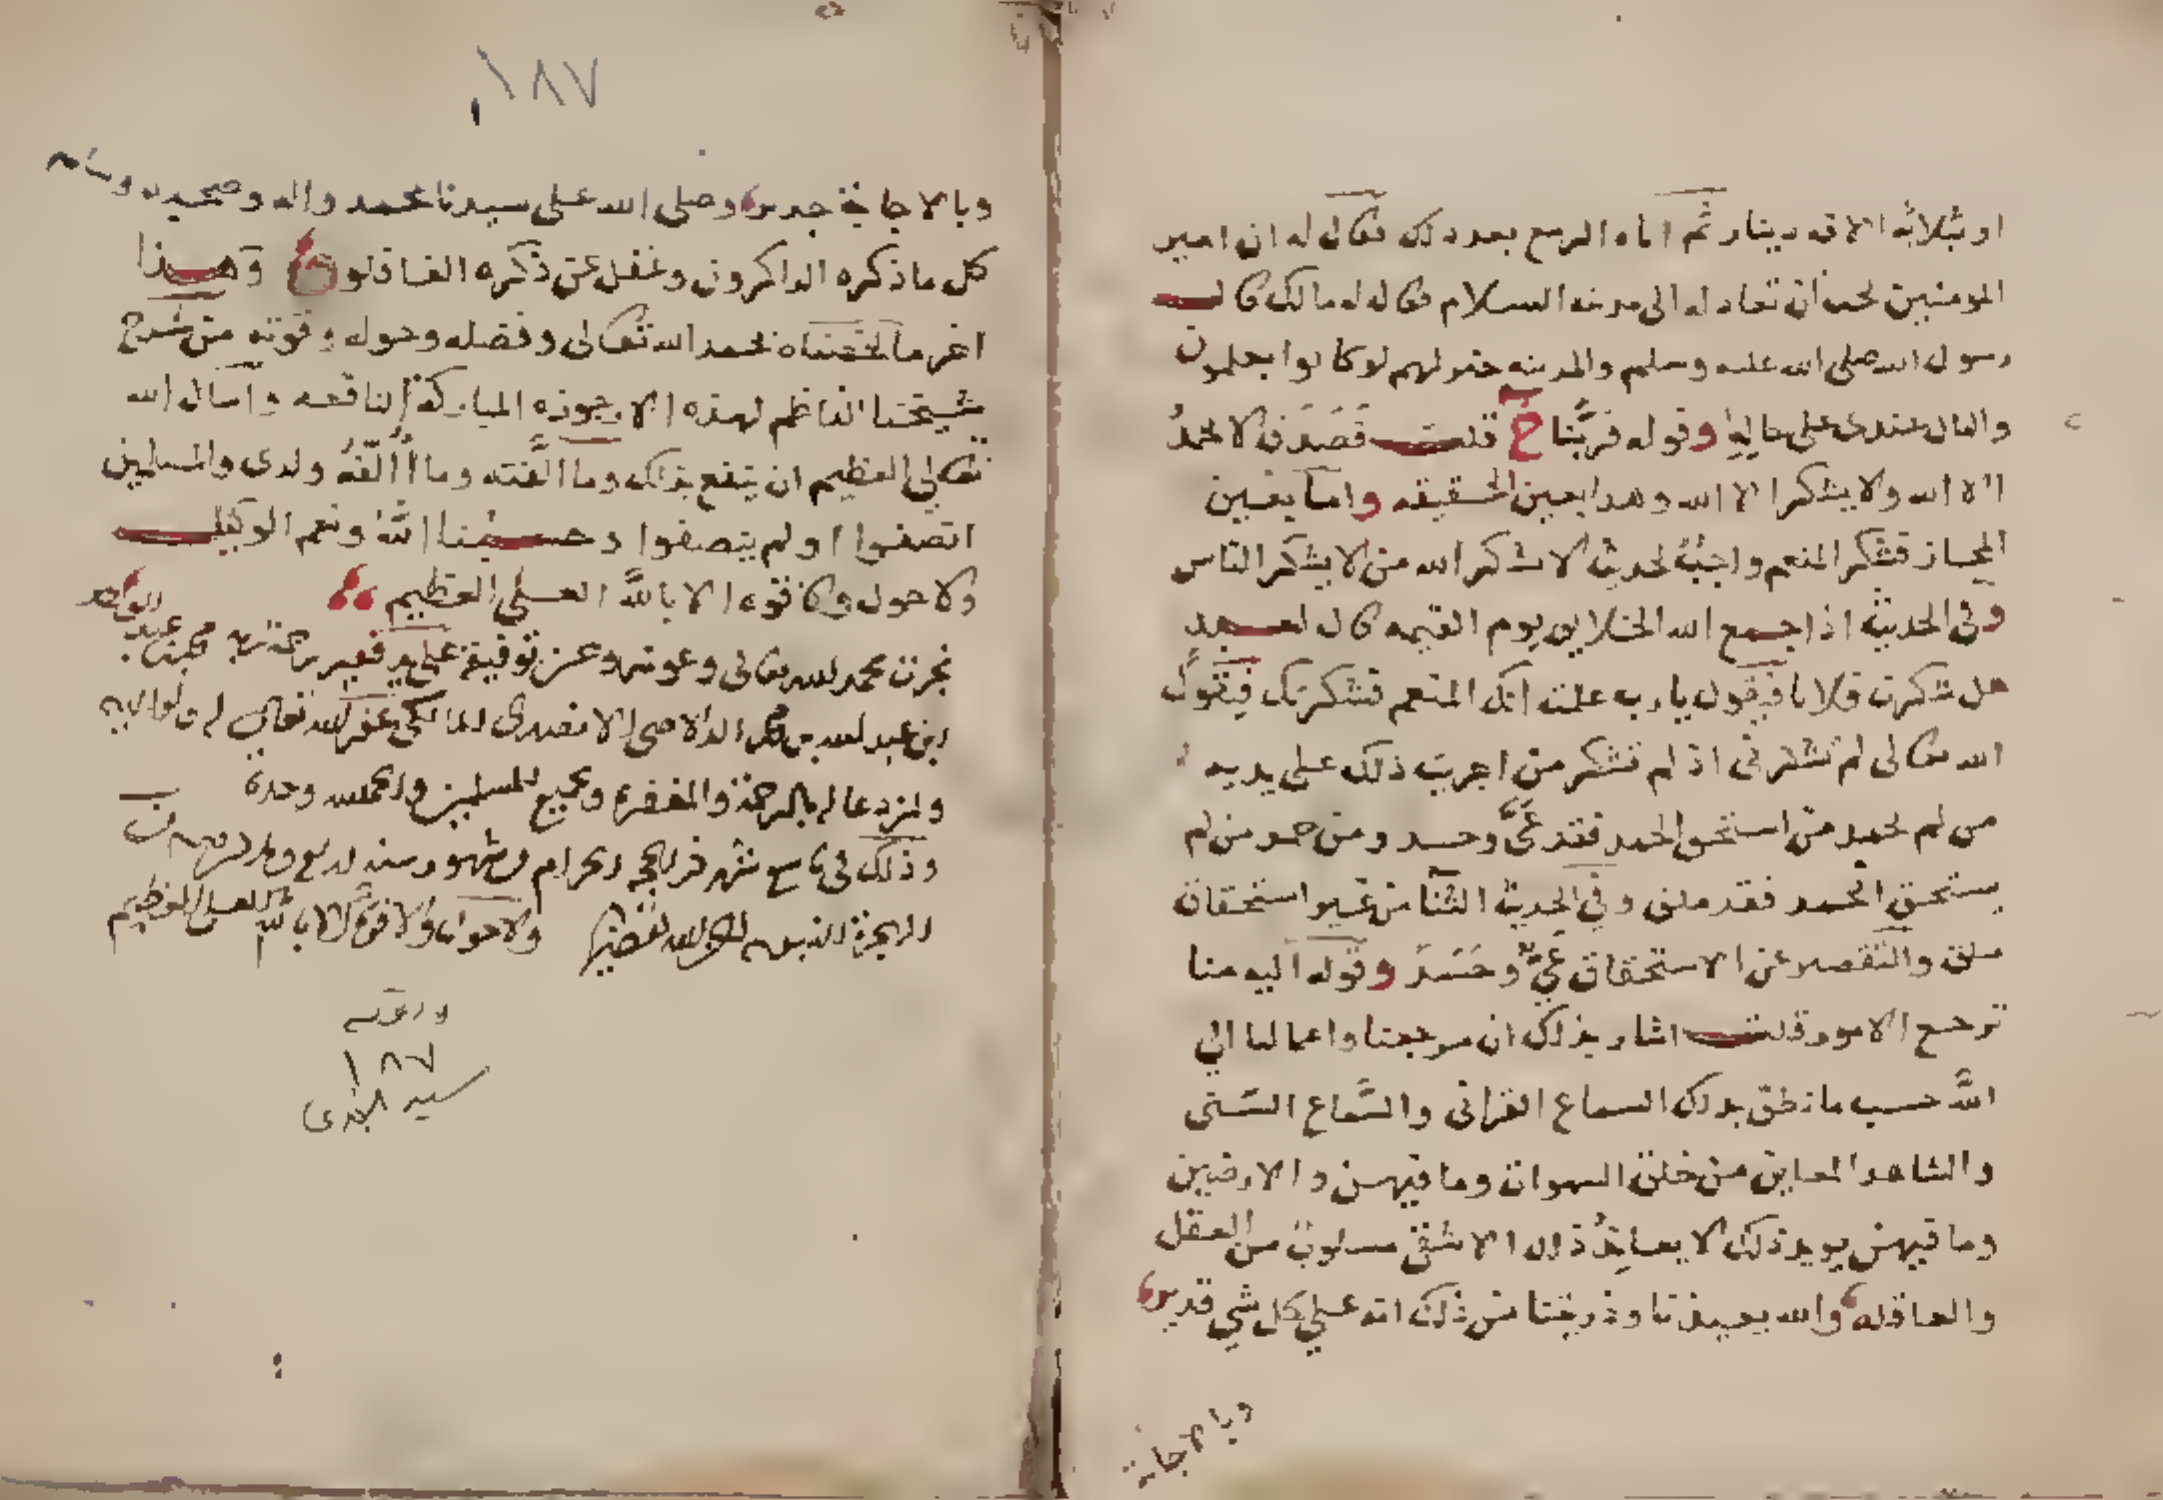 او بثلاثة الاف دينار ثم اتاه الربيع بعد ذلك فقال له ان امير
المومنين يحب ان تعادله الى مدينه السلام فقال له مالك قال
رسول الله صلى الله عليه وسلم والمدينه خير لهم لو كانوا يعلمون
والمال عندي على حاله وقوله فربنا ح قلت قصَدَ فه لا يحمدُ
الا الله ولا يشكر الا الله وهذا بعين الحقيقه واما بعين
المجاز فشكر المنعم واجبٌ لحديث لا شكر الله من لا يشكر الناس
وفي الحديث اذا جمع الله الخلايق يوم القيمه قال لعبد
هل شكرت فلانا فيقول يا رب علمت انك المنعم فشكرتك فيقول
الله تعالى لم تشكرني اذ لم تشكر من اجريت ذلك على يديه
من لم يحمد من استحق الحمد فقد عَيَّ وحسد ومن حمد من لم
يستحق الحمد فقد ملق وفي الحديث الثنا من غير استحقاق
ملق والتقصير عن الاستحقاق عيٌّ وحَسَدَ وقوله اليه منا
ترجع الامور قلت اشار بذلك ان مرجعنا واعمالنا الي
اللَّه حسب ما نطق بذلك السماع القراني والسَّماع السني
والشاهد المعاين من خلق السموات وما فيهن والارضين
وما فيهن يويد ذلك لا يعاند ذلك الا شقي مسلوب من العقل
والعاقله والله يعيذنا وذريتنا من ذلك انه علي كل شي قدير
وبالاجابة
١٨٧
وبالاجابة جدير وصلى الله على سيدنا محمد واله وصحبه وسلم
كل ما ذكره الذاكرون وغفل عن ذكره الغافلون وهذا
اخر ما لخصناه بحمد الله تعالى وفضله وحوله وقوته من شرح
شيخنا الناظم لهذه الارجوزه المباركة النافعه واسال الله
تعالي العظيم ان ينفع بذلك وما الَّفته وما أُألّفهُ ولدي والمسلمين
انصفوا او لم ينصفوا وحسبنا اللَّهُ ونعم الوكيل
ولا حول ولا قوه الا باللَّه العلي العظيم
نجزت بحمد الله تعالى وعونه وعز توفيقه على يد فقير رحمة ربه محمد بن عبد الواحد
ابن عبد الله بن محمد الانصاري المالكي غفر الله تعالى له ولوالديه
ولمن دعا له بالرحمة والمغفرة ولجميع المسلمين والحمد لله وحده
وذلك في تاسع شهر ذي الحجه الحرام من شهور سنه
الهجرة النبويه ولا حول ولا قوة الا بالله العلي العظيم
١٨٧
سيد الجندى